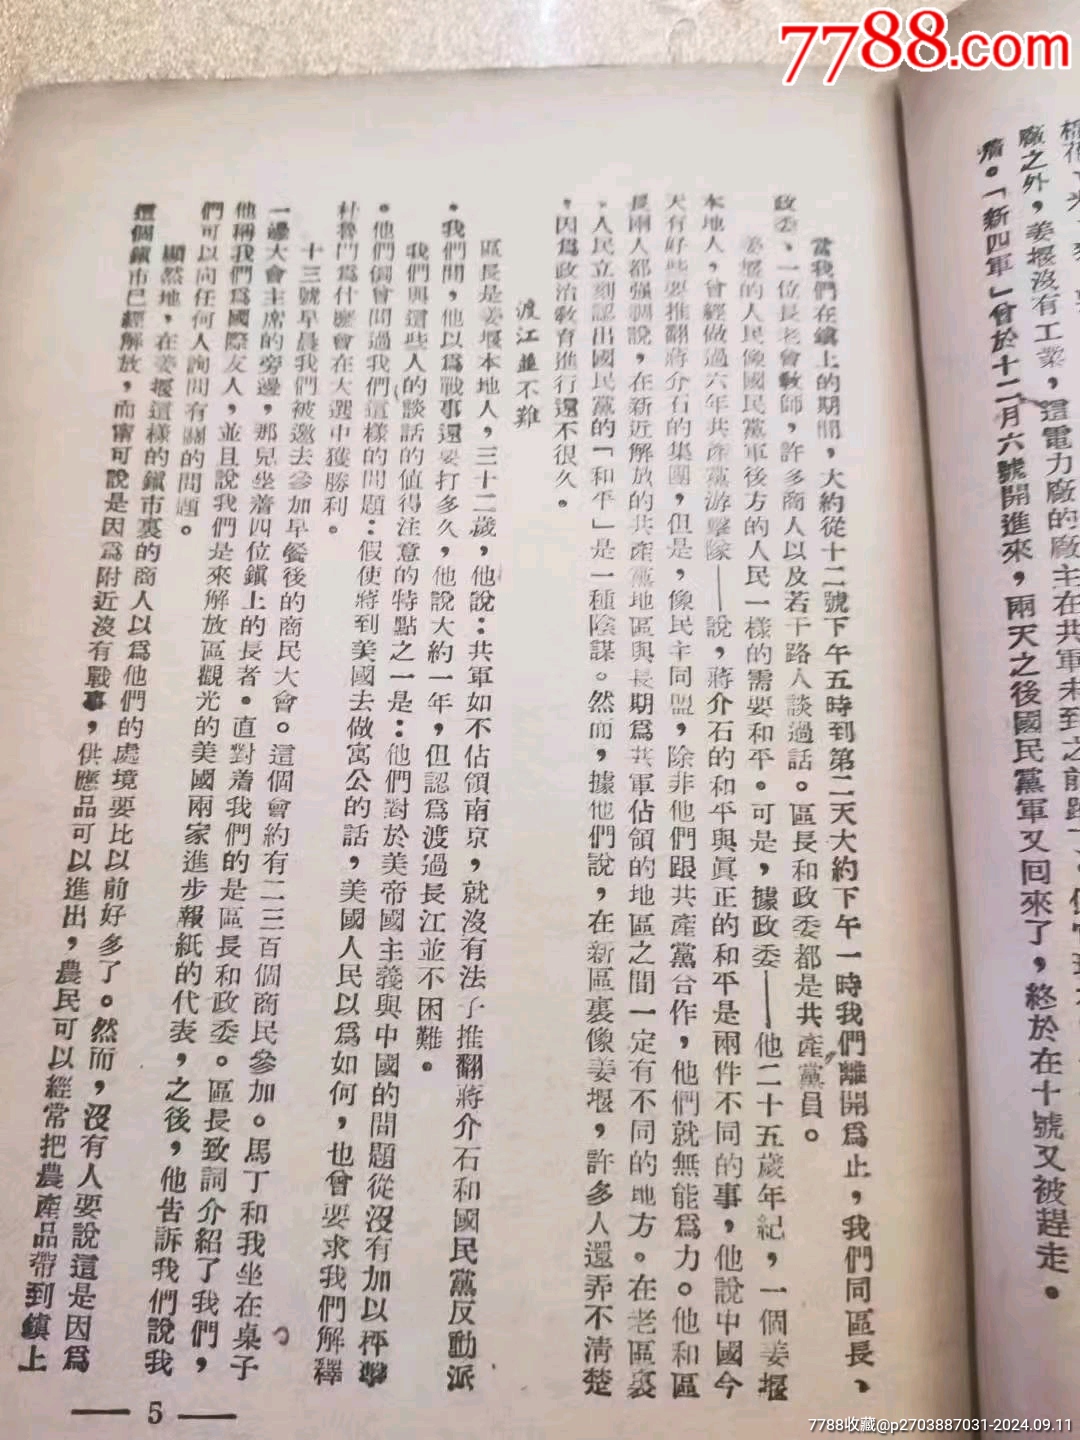 7788.com
廠之外，姜堰沒有工業，這電力廠的廠主在共軍未到之前
。「新四軍」曾於十二月六號開進來，兩天之後國民黨軍又回來了，終於在十號又被趕走。
當我們在鎮上的期間，大約從十二號下午五時到第二天大約下午一時我們離開爲止，我們同區長、
政委、一位長老會敎師，許多商人以及若干路人談過話。區長和政委都是共產黨員。
姜堰的人民像國民黨軍後方的人民一樣的需要和平。可是，據政委——他二十五歲年紀，一個姜堰
本地人，曾經做過六年共產黨游擊隊——說，蔣介石的和平與眞正的和平是兩件不同的事，他說中國今
天有好些要推翻蔣介石的集團，但是，像民主同盟，除非他們跟共產黨合作，他們就無能爲力。他和區
長兩人都强調說，在新近解放的共產黨地區與長期爲共軍佔領的地區之間一定有不同的地方。在老區裏
，人民立刻認出國民黨的「和平」是一種陰謀。然而，據他們說，在新區裏像姜堰，許多人還弄不清楚
，因爲政治敎育進行還不很久。
渡江並不難
區長是姜堰本地人，三十二歲，他說：共軍如不佔領南京，就沒有法子推翻蔣介石和國民黨反動派
。我們問，他以爲戰事還要打多久，他說大約一年，但認爲渡過長江並不困難。
我們與這些人的談話的值得注意的特點之一是：他們對於美帝國主義與中國的問題從沒有加以抨擊
。他們倒曾問過我們這樣的問題：假使蔣到美國去做寓公的話，美國人民以爲如何，也曾要求我們解釋
杜魯門爲什麽會在大選中獲勝利。
十三號早晨我們被邀去參加早餐後的商民大會。這個會約有二三百個商民參加。馬丁和我坐在桌子
一邊大會主席的旁邊，那兒坐着四位鎮上的長者。直對着我們的是區長和政委。區長致詞介紹了我們，
他稱我們爲國際友人，並且說我們是來解放區觀光的美國兩家進步報紙的代表，之後，他告訴我們說我
們可以向任何人詢問有關的問題。
顯然地，在姜堰這樣的鎮市裏的商人以爲他們的處境要比以前好多了。然而，沒有人要說這是因爲
這個鎮市已經解放，而甯可說是因爲附近沒有戰事，供應品可以進出，農民可以經常把農產品帶到鎮上
— 5 —
7788收藏@p2703887031-2024.09.11